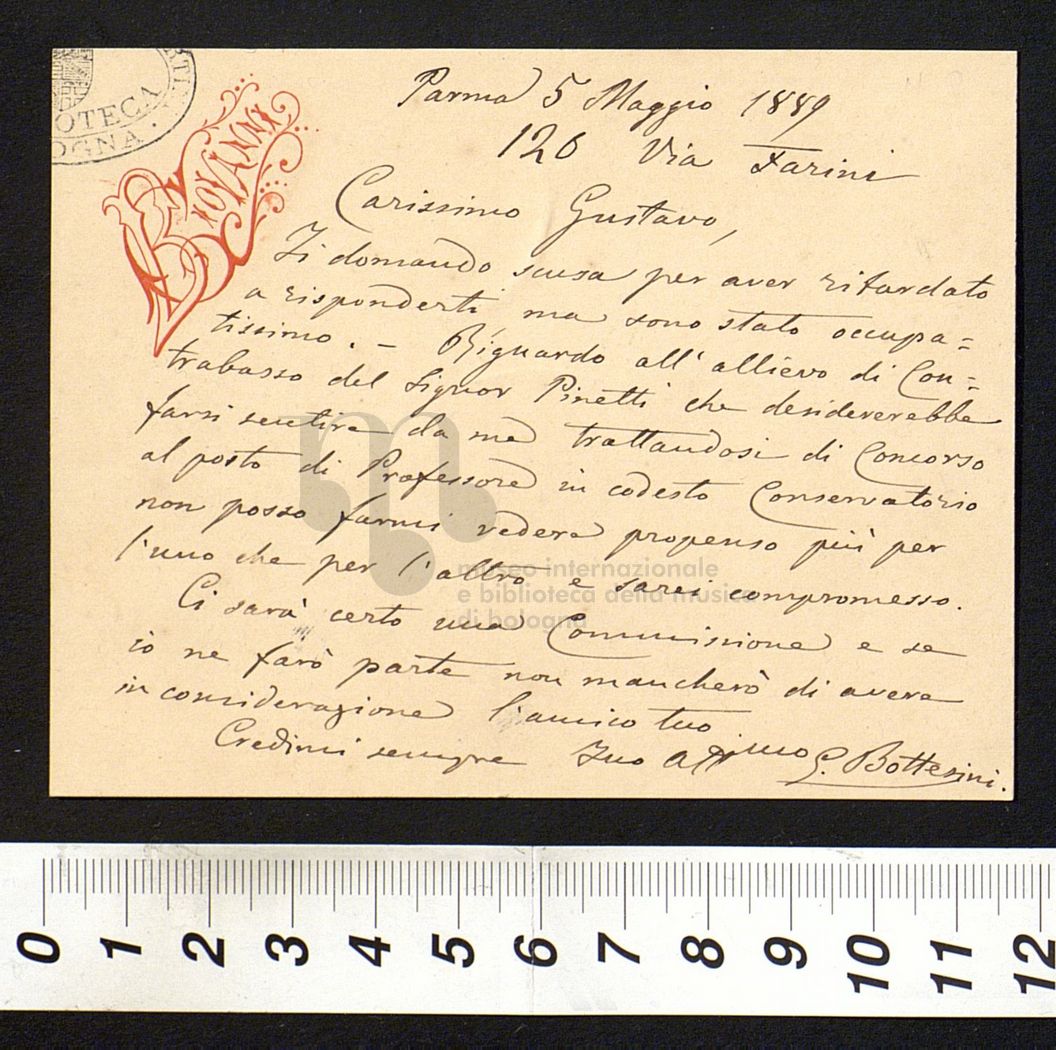 OTECA
OGNA
GIOVANNI
Parma 5 Maggio 1889
126 Via Farini
Carissimo Gustavo,
Ti domando scusa per aver ritardato
a risponderti ma sono stato occupa=
tissimo. – Riguardo all'allievo di Con=
trabasso del Signor Pinetti che desidererebbe
farsi sentire da me trattandosi di Concorso
al posto di Professore in codesto Conservatorio
non posso farmi vedere propenso più per
l'uno che per l'altro e sarei compromesso.
Ci sarà certo una Commissione e se
io ne farò parte non mancherò di avere
in considerazione l'amico tuo
Credimi sempre Tuo Aff imo G. Bottesini.
museo internazionale
e biblioteca della musica
di bologna
0 1 2 3 4 5 6 7 8 9 10 11 12